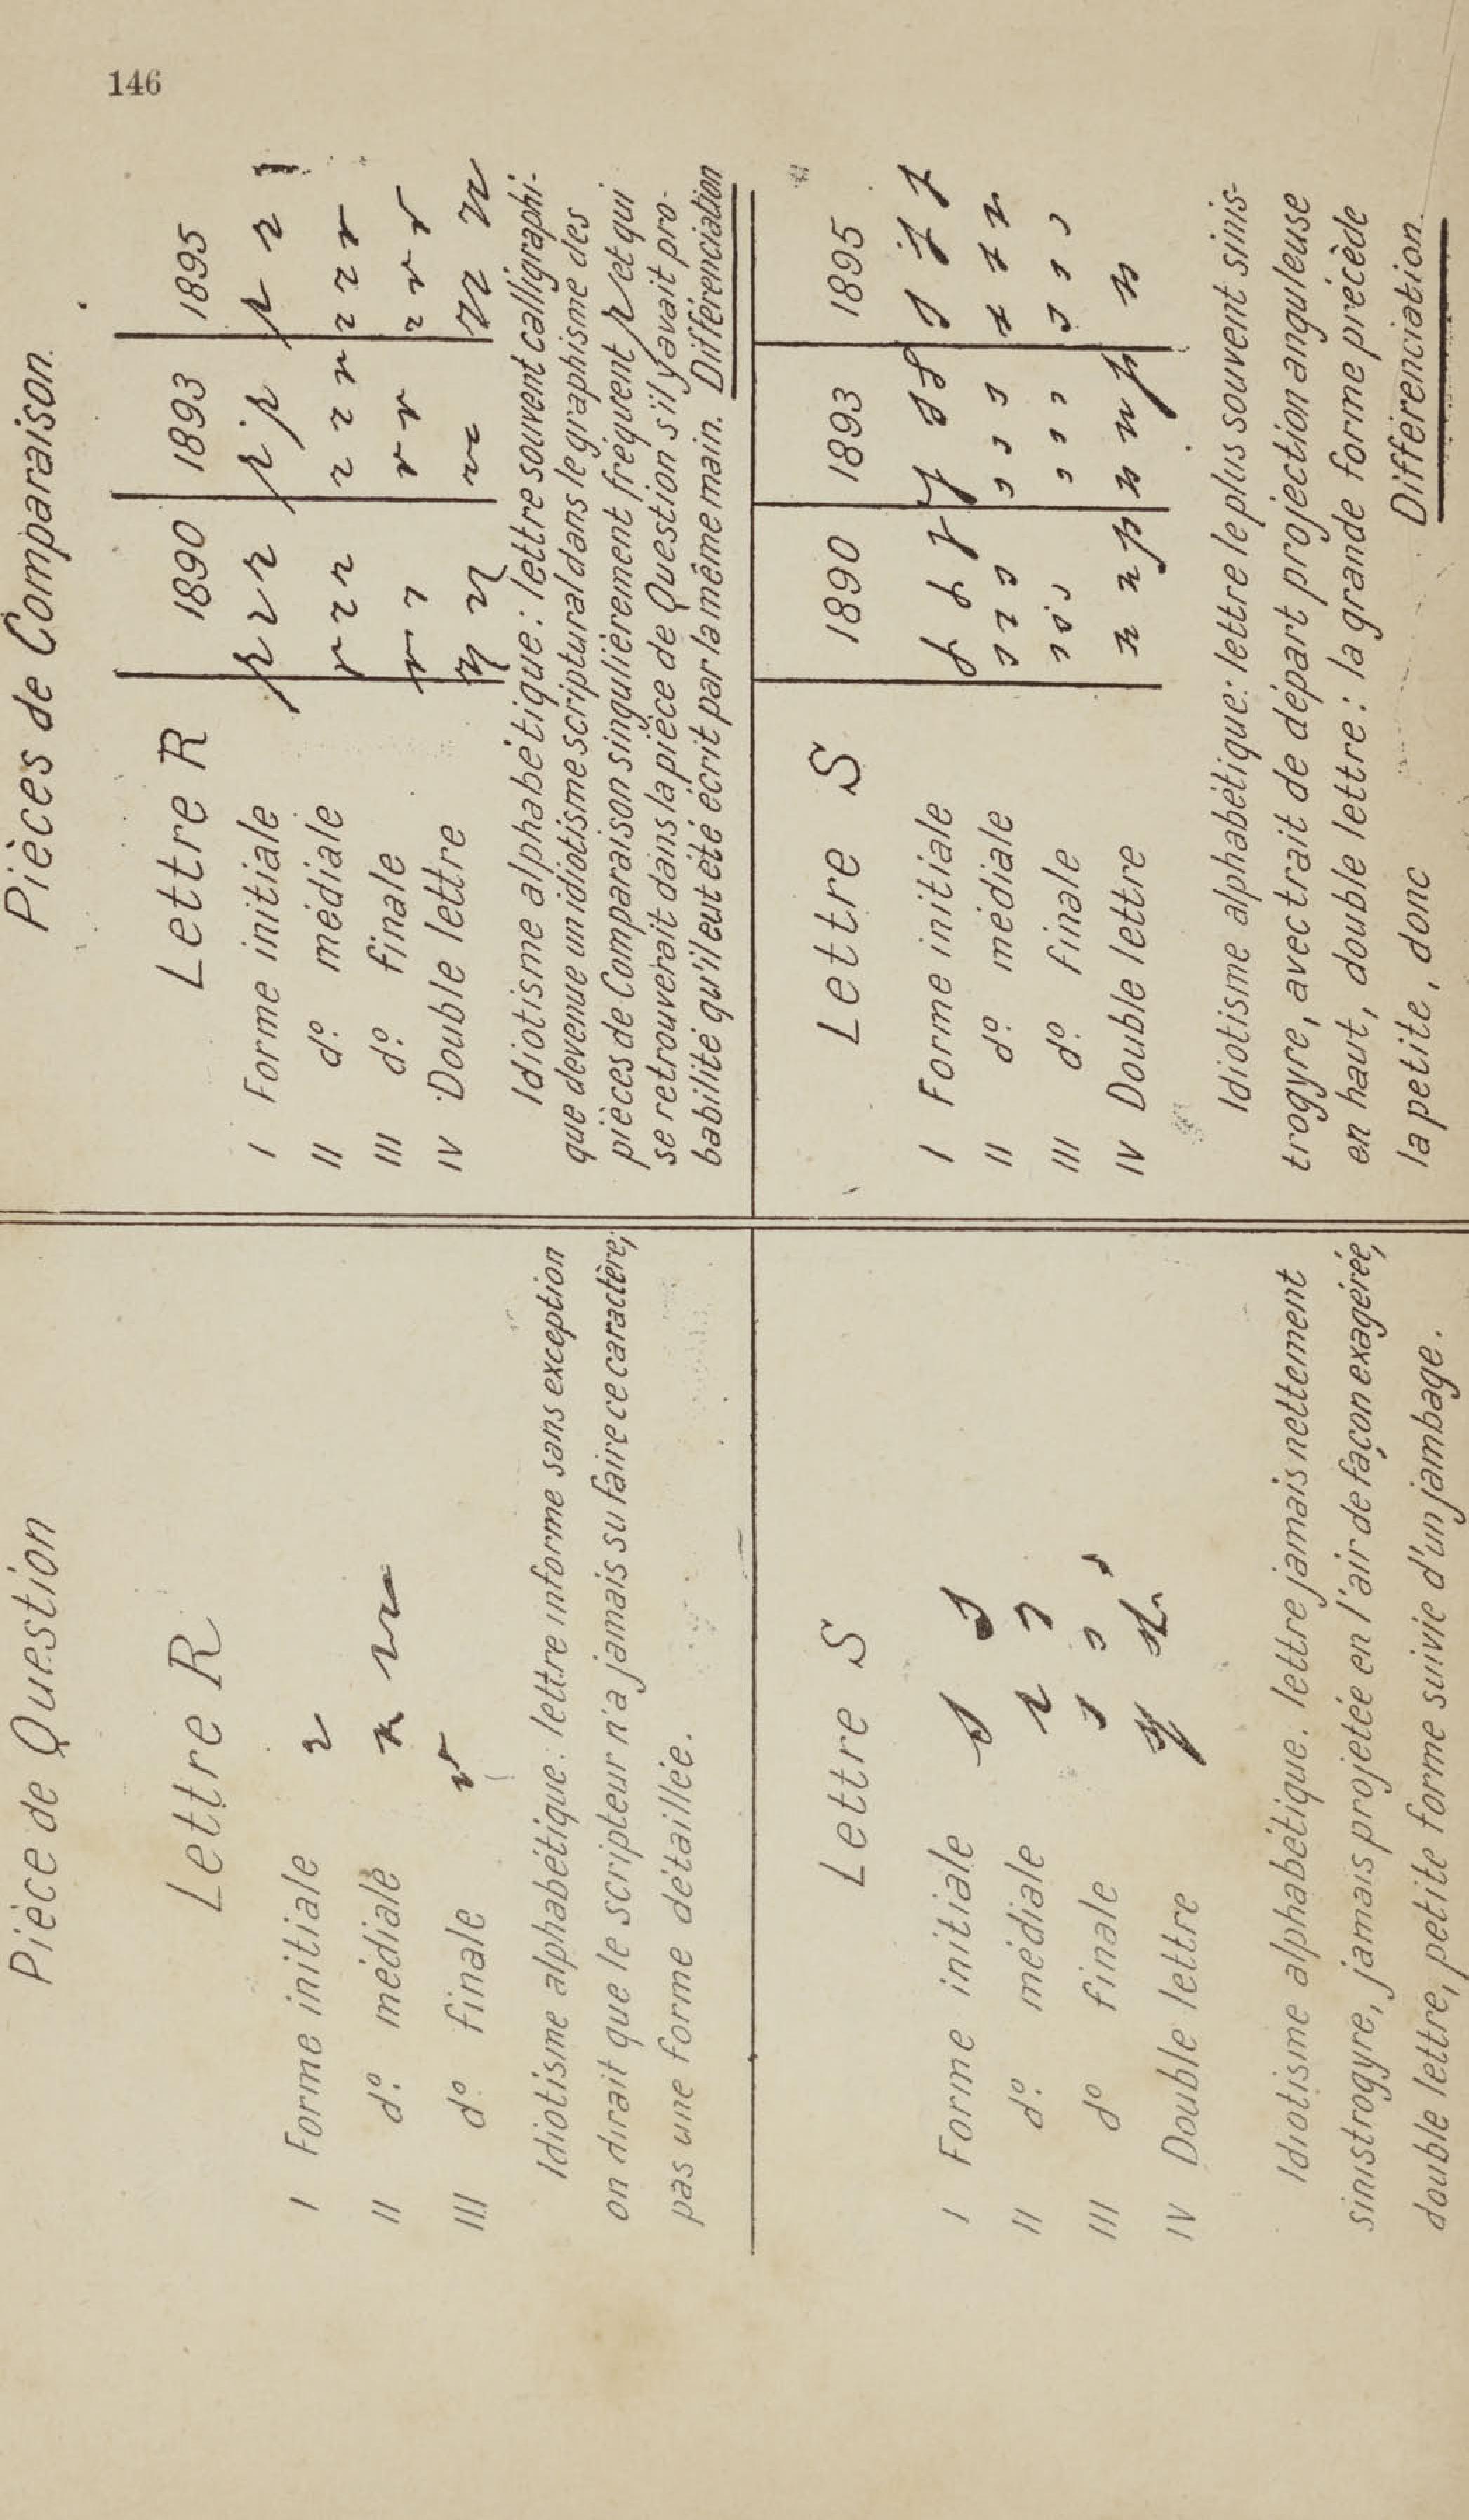 146
Pièce de Question
Lettre R
I Forme initiale
II d° médiale
III d° finale
Idiotisme alphabétique: lettre informe sans exception
on dirait que le scripteur n'a jamais su faire ce caractère;
pas une forme détaillée.
Lettre S
I Forme initiale
II d° médiale
III d° finale
IV Double lettre
Idiotisme alphabétique: lettre jamais nettement
sinistrogyre, jamais projetée en l'air de façon exagérée,
double lettre, petite forme suivie d'un jambage.
Pièces de Comparaison.
Lettre R 1890 1893 1895
I Forme initiale
II d° médiale
III d° finale
IV Double lettre
Idiotisme alphabétique: lettre souvent calligraphi-
que devenue un idiotisme scriptural dans le graphisme des
pièces de Comparaison singulièrement fréquent r et qui
se retrouverait dans la pièce de Question s'il y avait pro-
babilité qu'il eut été écrit par la même main. Différenciation
Lettre S 1890 1893 1895
I Forme initiale
II d° médiale
III d° finale
IV Double lettre
Idiotisme alphabétique: lettre le plus souvent sinis-
trogyre, avec trait de départ projection anguleuse
en haut, double lettre: la grande forme précède
la petite, donc Différenciation.